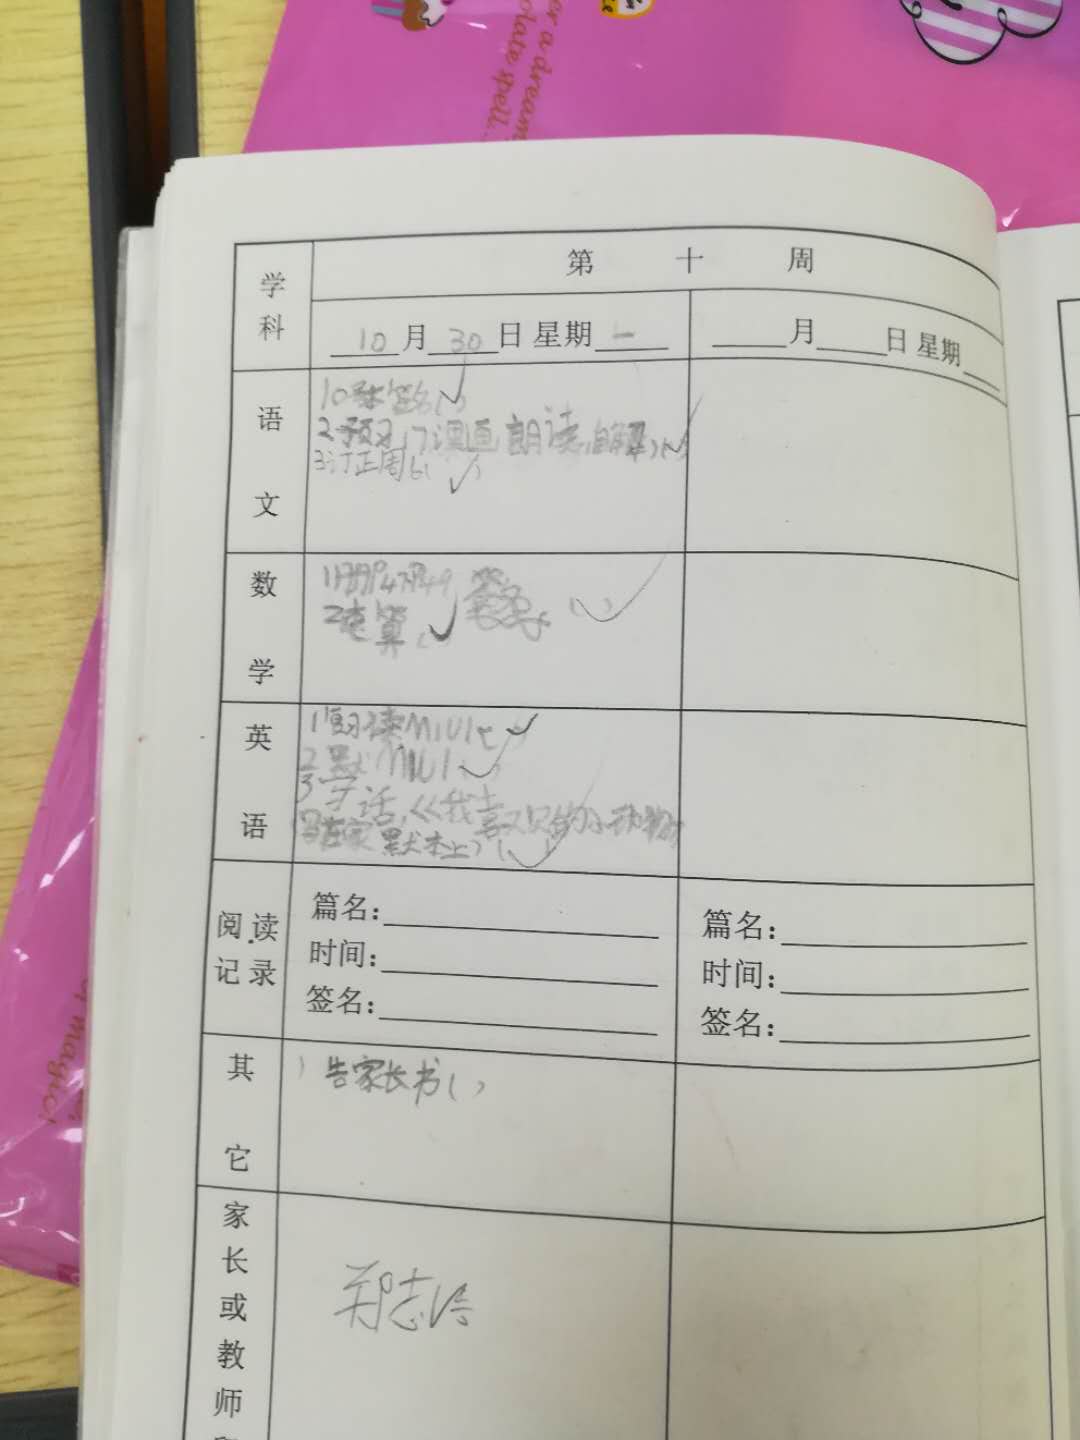 er a dream
olate spell...
学科
第 十 周
10月30日 星期一
月 日 星期
语文
签名()
2预习17课画,朗读,自解()
3订正周6()
数学
P47 P49
2速算()
英语
1朗读M1U1
2默M1U1
话,《我喜欢的小动物》
写在家默本上)()
阅读记录
篇名:
时间:
签名:
篇名:
时间:
签名:
其它
1)告家长书()
家长或教师
郑志
of magic